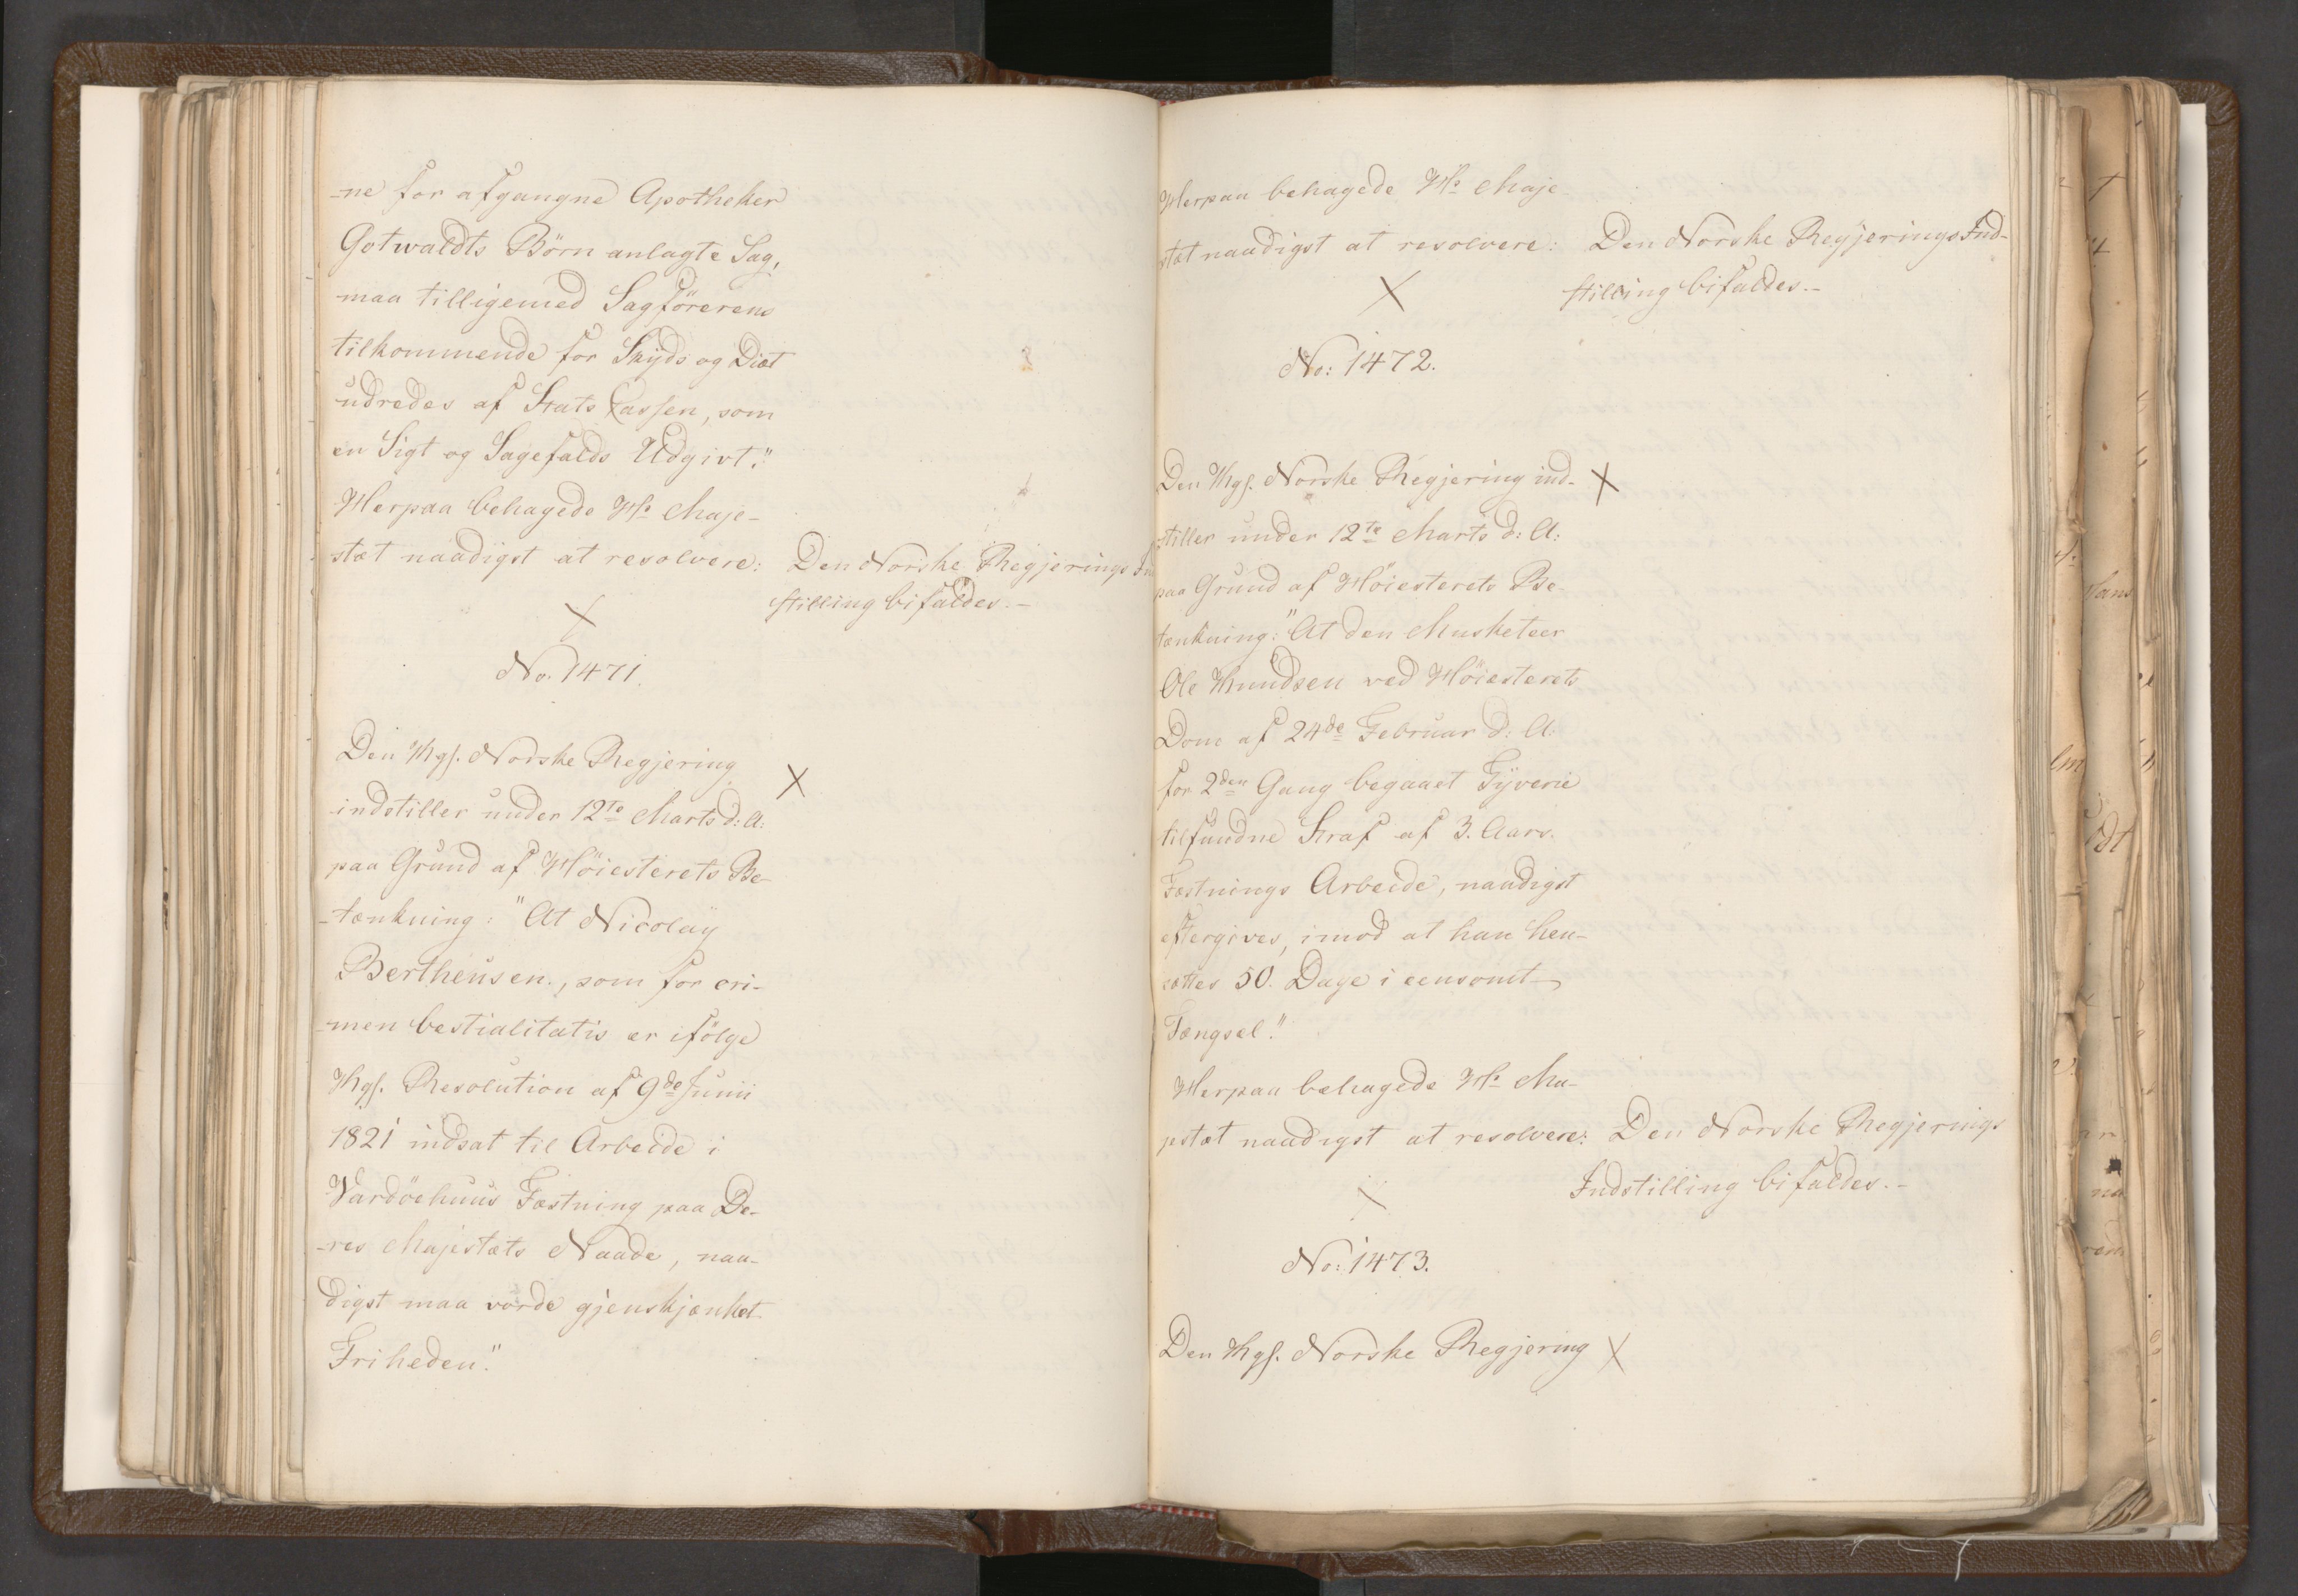 -ne for afgangne Apotheker
Gotwaldts Börn anlagte Sag,
maa tilligemed Sagförerens
tilkommende for Skyds og Diæt
udredes af Stats Cassen, som
en Sigt og Sagefalds Udgivt."
Herpaa behagede Hs Maje-
stæt naadigst at resolvere: Den Norske Regjerings In
stilling bifaldes.-
No. 1471.
Den Kgl. Norske Regjering
indstiller under 12te Marts d: A:
paa Grund af Höiesterets Be-
-tænkning: "At Nicolay
Bertheusen, som for cri-
-men bestialitatis er ifölge
Kgl. Resolution af 9de Junii
1821 indsat til Arbeide i
Vardöehuus Fæstning paa De-
-res Majestæts Naade, naa-
digst maa vorde gjenskjænket
Friheden."
Herpaa behagede Hs Maje
stæt naadigst at resolvere: Den Norske Regjerings Ind-
stilling bifaldes.-
No: 1472.
Den Kgl. Norske Regjering ind-
stiller under 12te Marts d: A:
paa Grund af Höiesterets Be-
tænkning: "At den Musketeer
Ole Knudsen ved Höiesterets
Dom af 24de Februar d: A:
for 2den Gang begaaet Tyverie
tilfundne Straf af 3. Aars.
Fæstnings Arbeide, naadigst
eftergives, imod at han hen-
sættes 50. Dage i eensomt
Fængsel."
Herpaa behagede Hs Ma-
jestæt naadigst at resolvere: Den Norske Regjerings
Indstilling bifaldes.-
No: 1473.
Den Kgl. Norske Regjering